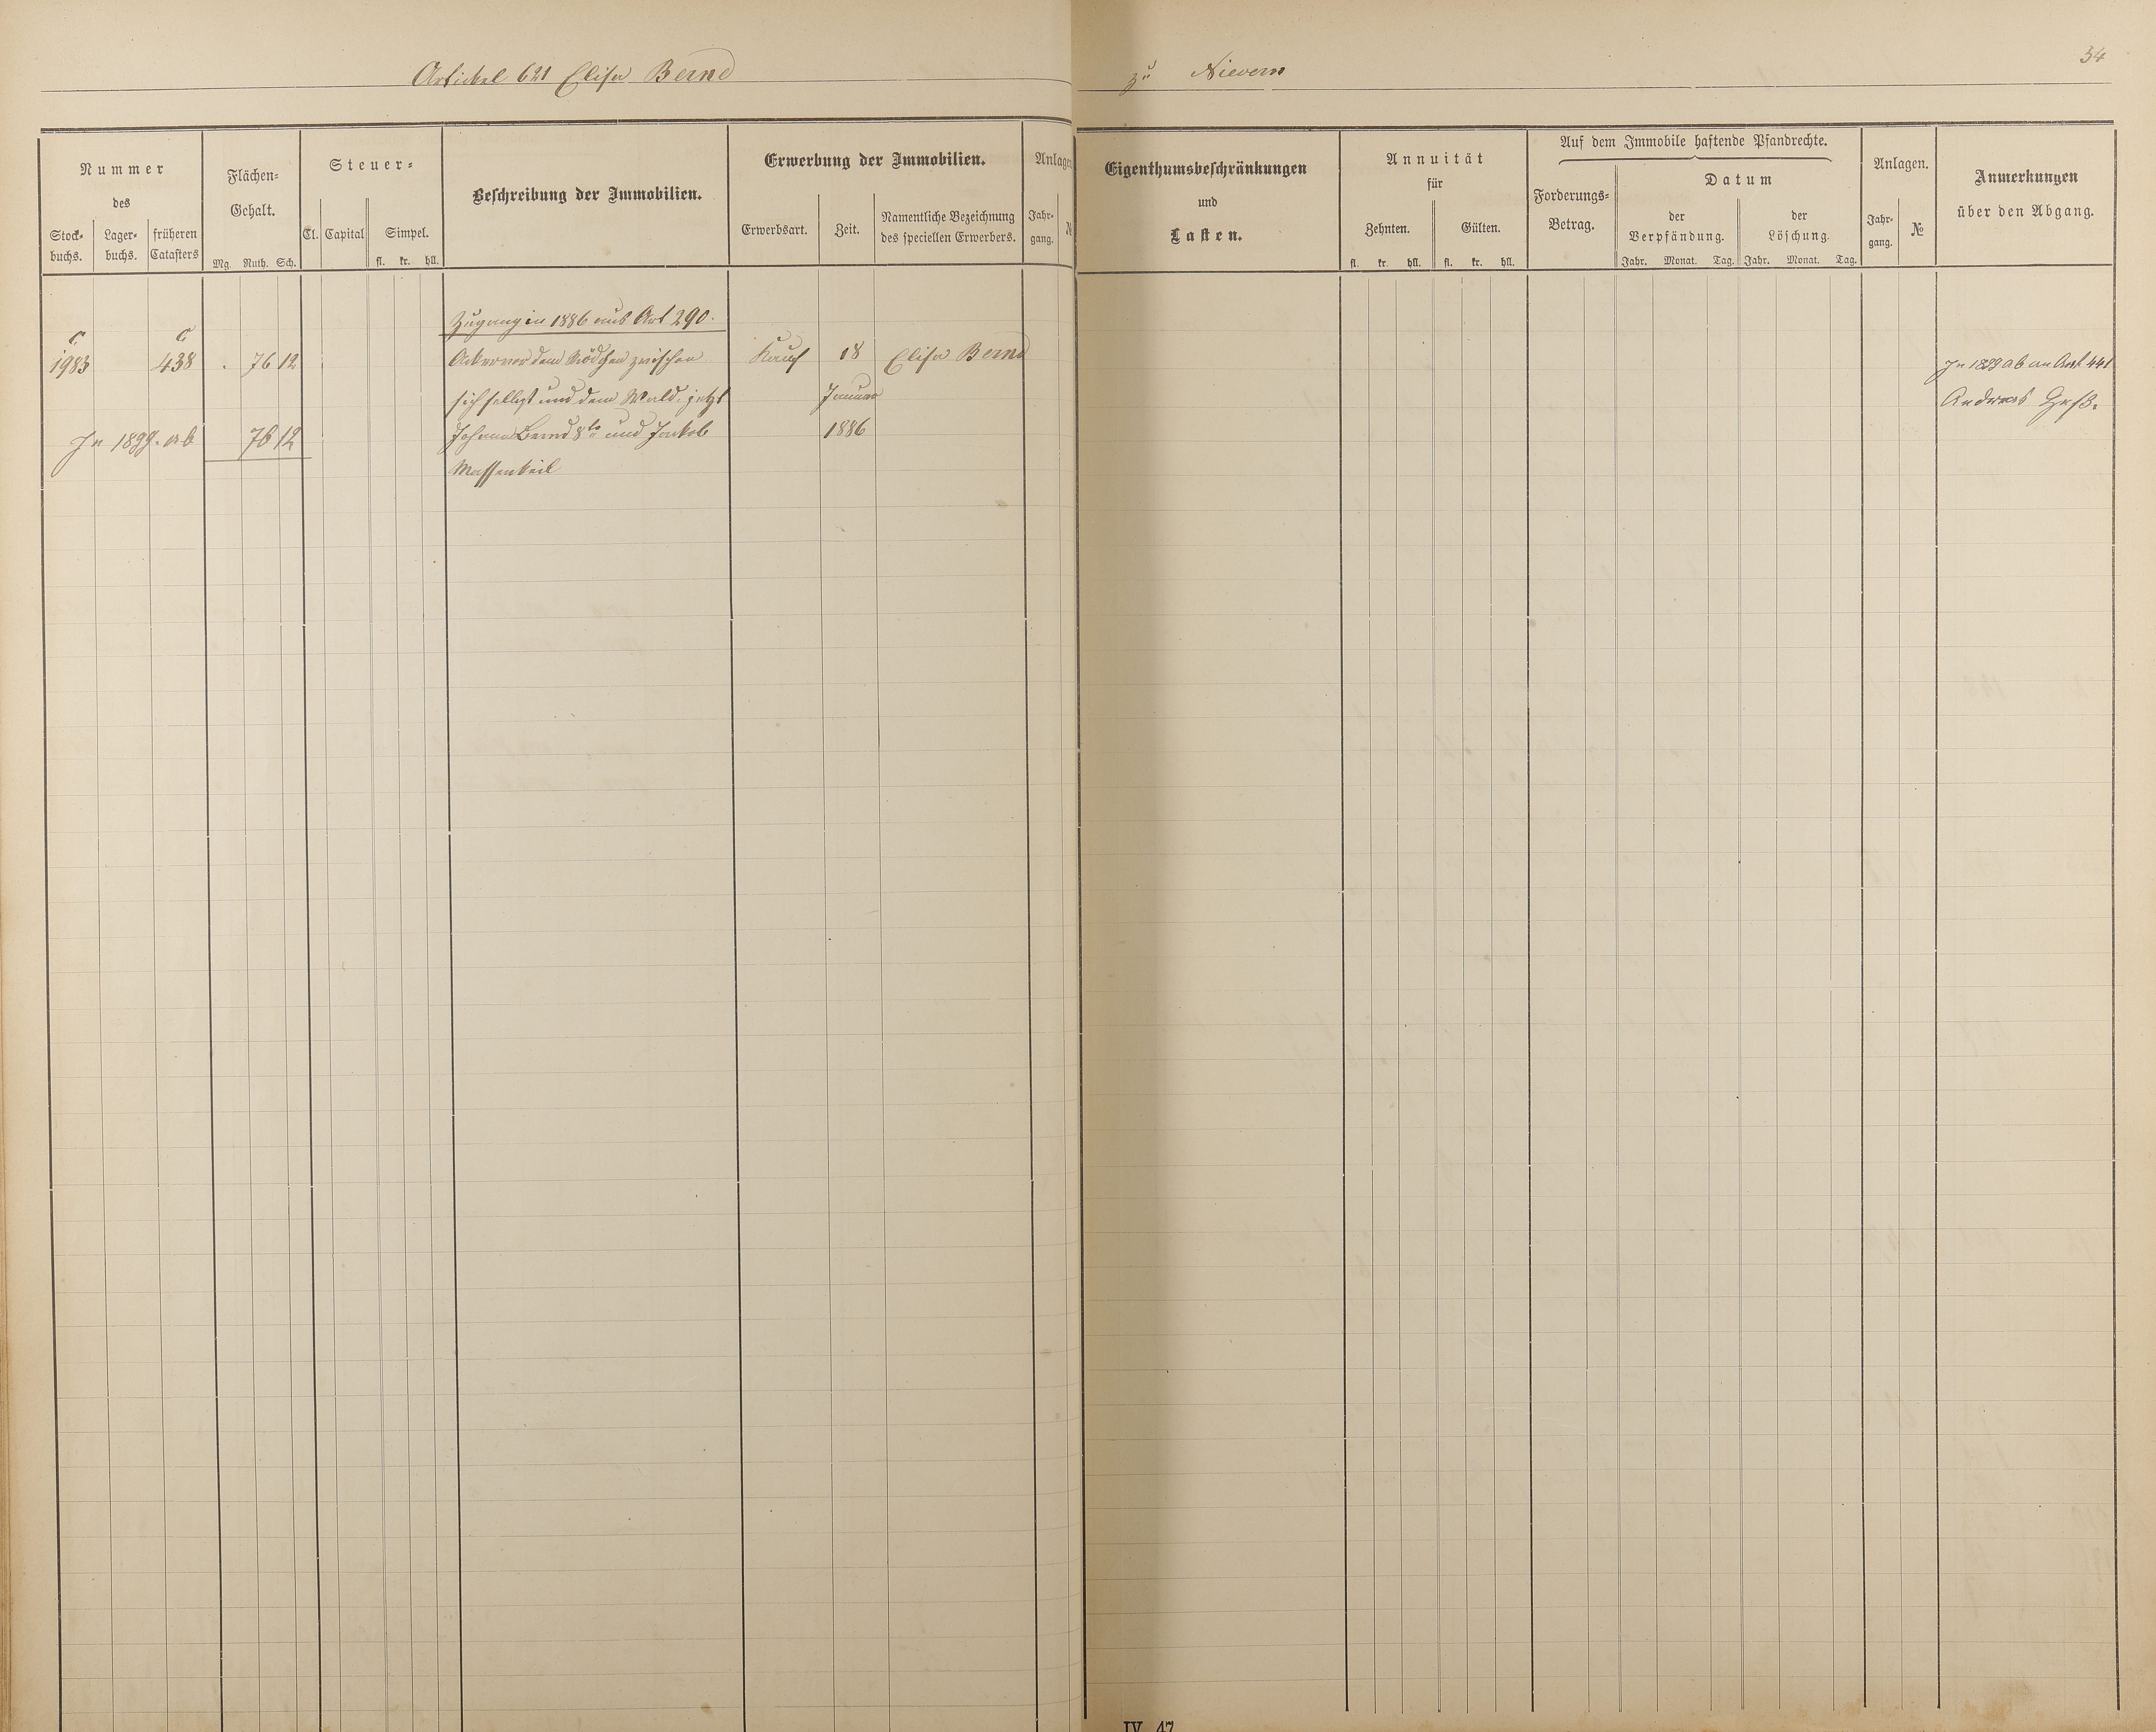 Artickel 621 Elisa Bernd zu Nievern
34
Nummer
des
Stock-
buchs.
Lager-
buchs.
früheren
Catasters
Flächen-
Gehalt.
Mg. Ruth. Sch.
Steuer-
Cl. Capital Simpel.
fl. kr. hll.
Beschreibung der Immobilien.
Erwerbung der Immobilien.
Erwerbsart. Zeit.
Namentliche Bezeichnung
des speciellen Erwerbers.
Anlage
Jahr-
gang.
N
Eigenthumsbeschränkungen
und
Lasten.
Annuität
für
Zehnten. Gülten.
fl. kr. hll. fl. kr. hll.
Auf dem Immobile haftende Pfandrechte.
Forderungs-
Betrag.
Datum
der
Verpfändung.
der
Löschung.
Jahr. Monat. Tag. Jahr. Monat. Tag.
Anlagen.
Jahr-
gang.
№
Anmerkungen
über den Abgang.
Zugang in 1886 aus Art 290.
C C
1983 438 . 76 12 Acker vor dem zwischen Kauf 18 Elisa Bernd
In ab an Art 441
sich selbst und dem Wald. jetzt Januar
Andreas
In ab 76 12 Johann Bernd 8te und Jackob 1886
Massenkeil
IV. 47